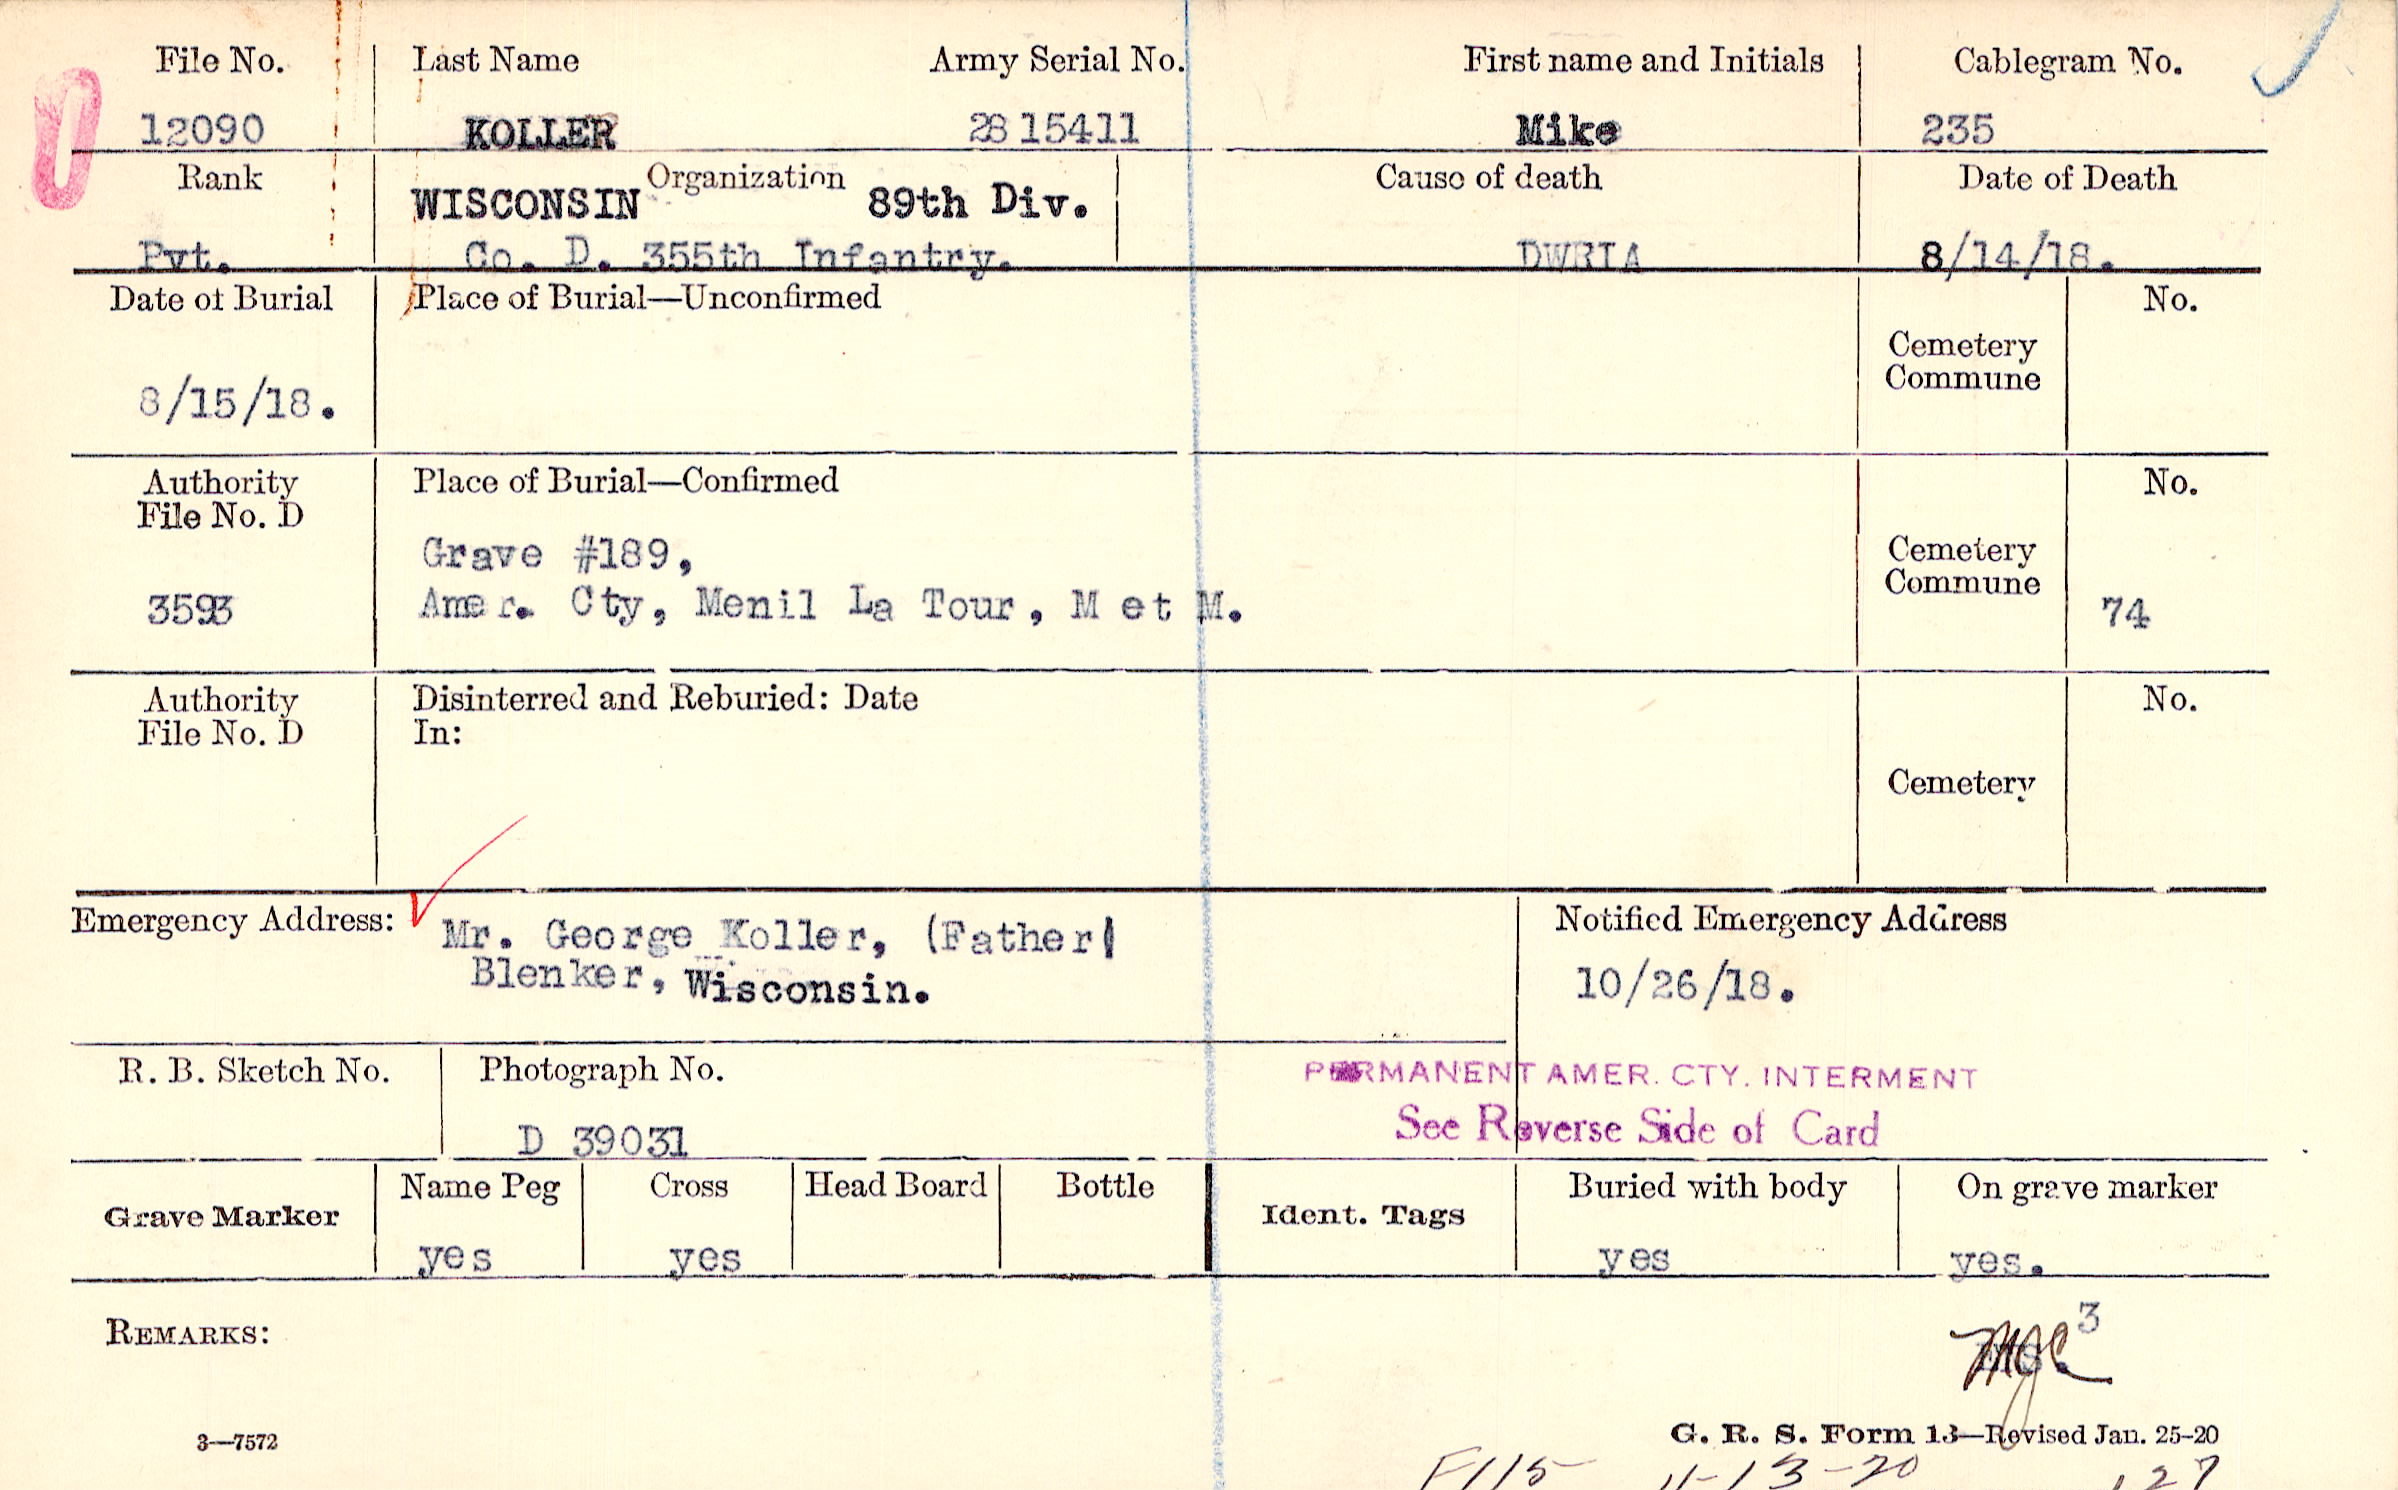 File No. Last Name Army Serial No. First name and Initials Cablegram No.
12090 KOLLER 2815411 Mike 235
Rank Organization Cause of death Date of Death
WISCONSIN 89th Div.
Pvt. Co. D. 355th Infantry. DWRIA 8/14/18.
Date of Burial Place of Burial—Unconfirmed No.
Cemetery
Commune
8/15/18.
Authority Place of Burial—Confirmed No.
File No. D
Grave #189, Cemetery
Commune
3593 Amer. Cty, Menil La Tour, M et M. 74
Authority Disinterred and Reburied: Date No.
File No. D In:
Cemetery
Emergency Address: Mr. George Koller, (Father) Notified Emergency Address
Blenker, Wisconsin. 10/26/18.
R. B. Sketch No. Photograph No. PERMANENT AMER. CTY. INTERMENT
D 39031 See Reverse Side of Card
Grave Marker Name Peg Cross Head Board Bottle Ident. Tags Buried with body On grave marker
yes yes yes yes.
3
REMARKS:
3—7572 G. R. S. Form 13—Revised Jan. 25-20
F115 11-13-20 127